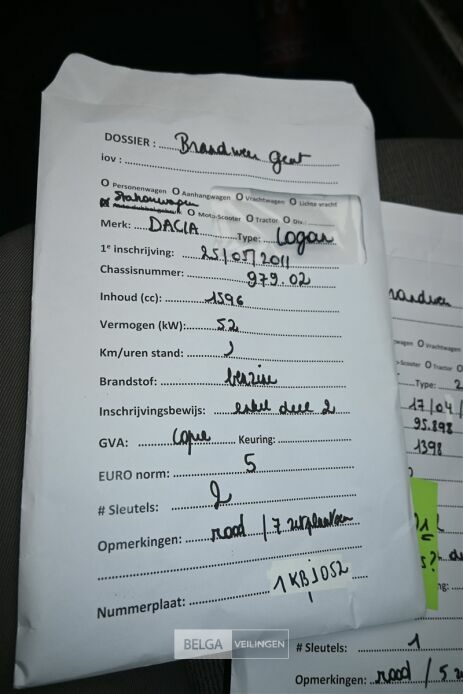 DOSSIER : Brandweer Gent
iov :
O Personenwagen O Aanhangwagen O Vrachtwagen O Lichte vracht
Stationwagen O Moto-Scooter O Tractor O Div.
Merk: DACIA Type: Logan
1e inschrijving: 25/05/2011
Chassisnummer: 979.02
Inhoud (cc): 1596
Vermogen (kW): 52
Km/uren stand: ?
Brandstof: benzine
Inschrijvingsbewijs: enkel deel 2
GVA: copie Keuring:
EURO norm: 5
# Sleutels: 2
Opmerkingen: rood / 7 zitplaatsen
Nummerplaat: 1KBJ052
BELGA VEILINGEN
Vrachtwagen
-Scooter O Tractor
Type: 2
17/04/
95.898
1398
# Sleutels: 1
Opmerkingen: rood / 5